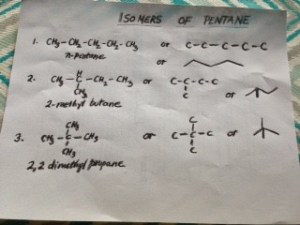 ISOMERS OF PENTANE
1. CH₃-CH₂-CH₂-CH₂-CH₃ or C-C-C-C-C
n-Pentane or
2. CH₃-CH-CH₂-CH₃ or C-C-C-C
CH₃ C or
2-methyl butane
CH₃ C
3. CH₃-C-CH₃ or C-C-C or
CH₃ C
2,2 dimethyl propane